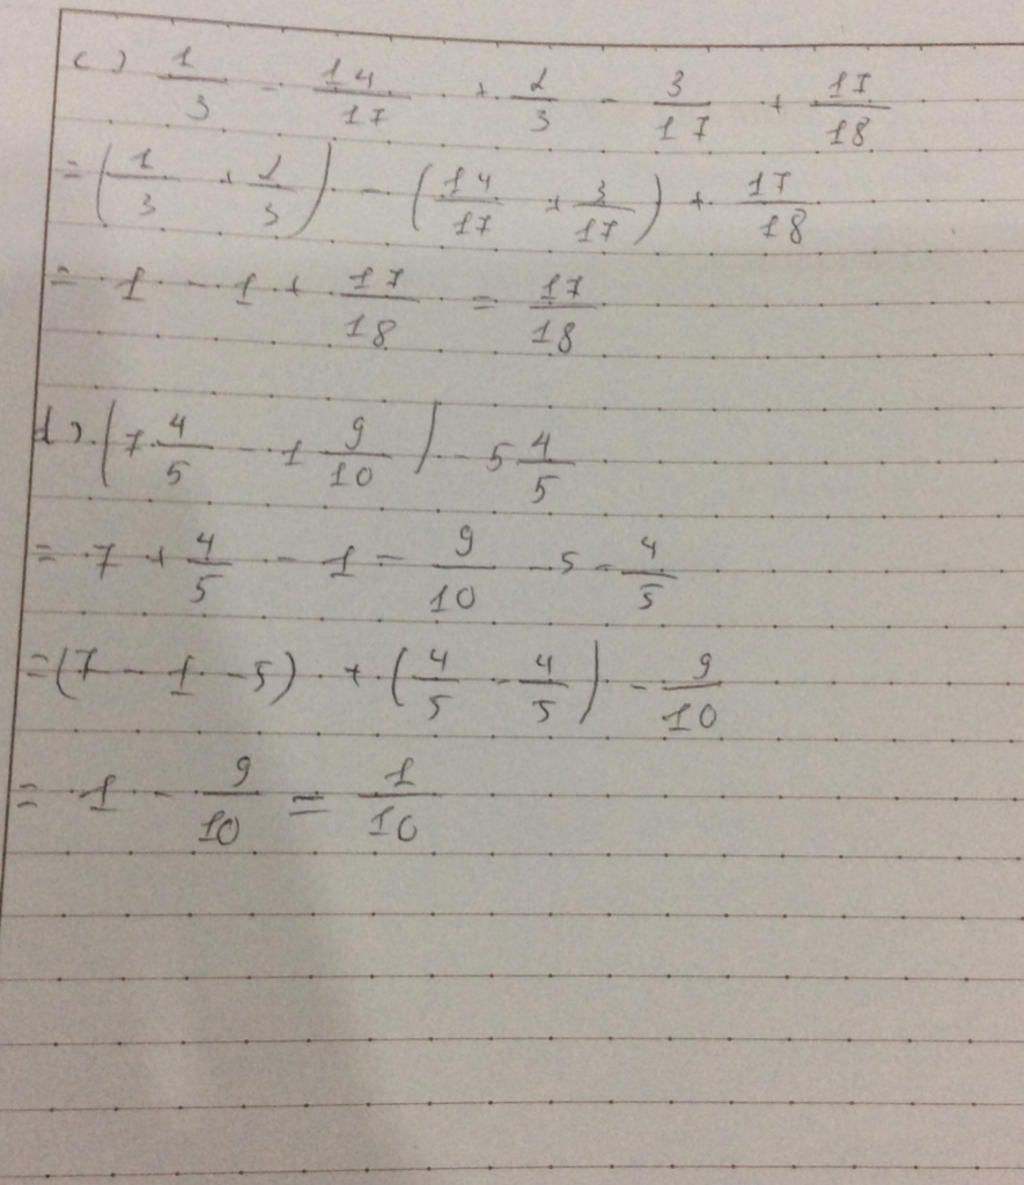 c) 1/3 - 14/17 + 2/3 - 3/17 + 17/18
= (1/3 + 2/3) - (14/17 + 3/17) + 17/18
= 1 - 1 + 17/18 = 17/18
d) (7 4/5 - 1 9/10) - 5 4/5
= 7 + 4/5 - 1 - 9/10 - 5 - 4/5
= (7 - 1 - 5) + (4/5 - 4/5) - 9/10
= 1 - 9/10 = 1/10